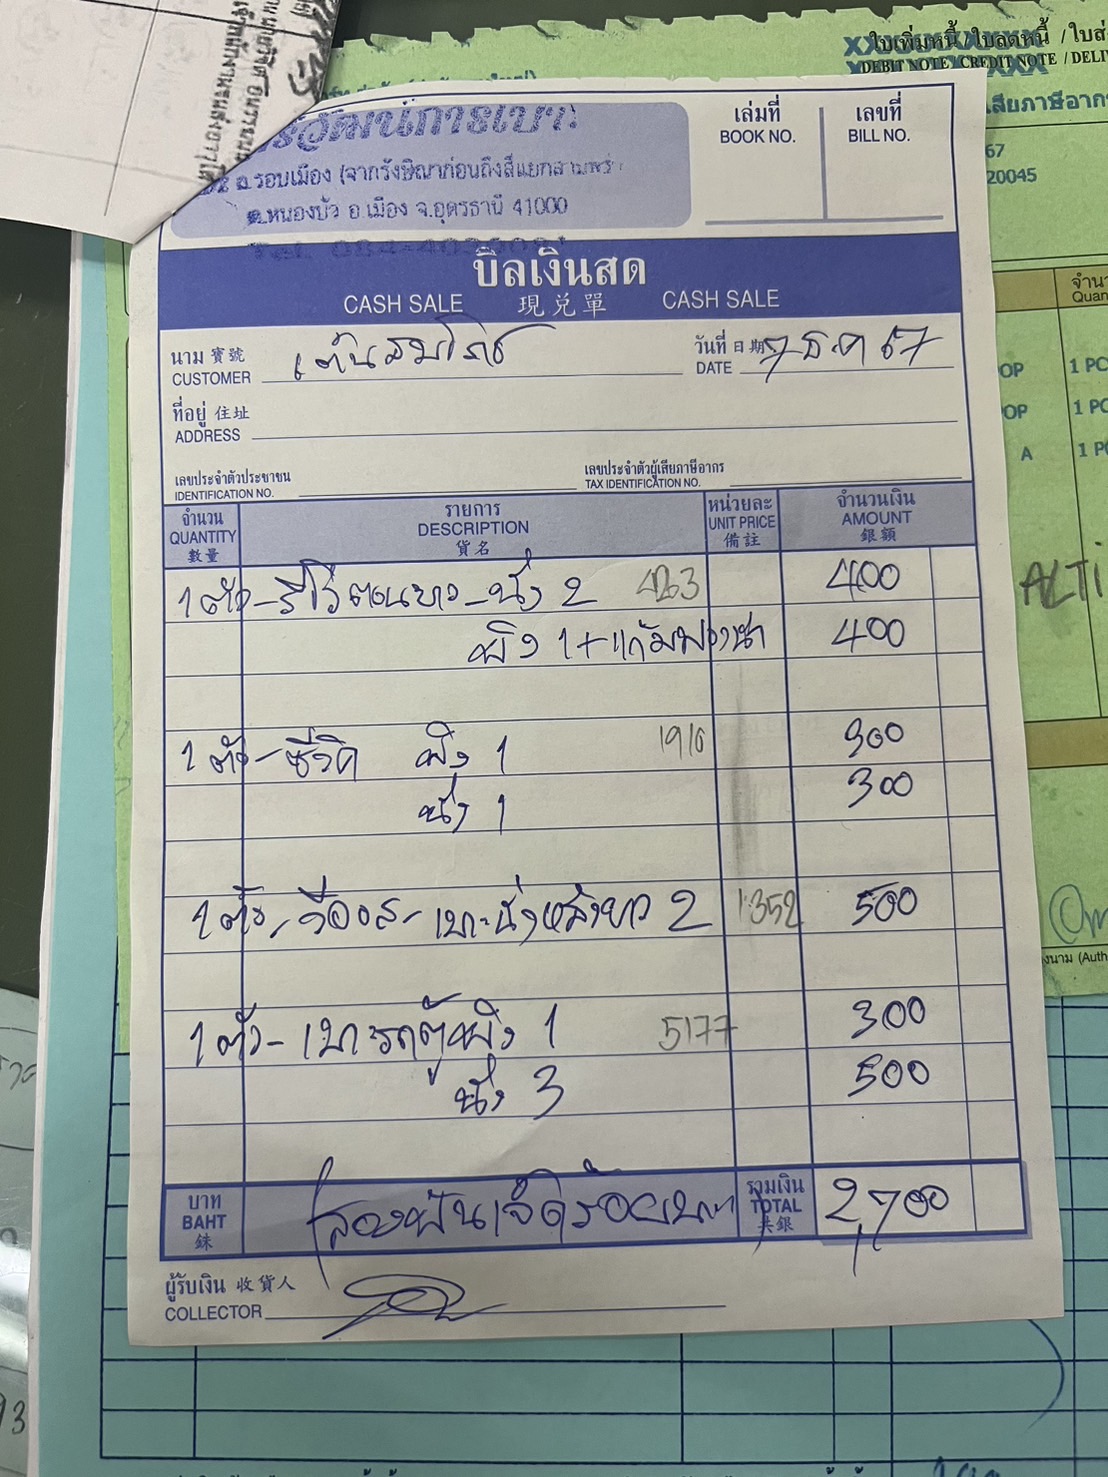 ใบเพิ่มหนี้ / ใบลดหนี้ / ใบส่
DEBIT NOTE / CREDIT NOTE / DELI
เสียภาษีอากร
67
20045
จำน
Quan
OP 1 PC
OP 1 PC
A 1 P
ALTI
งนาม (Auth
เล่มที่
BOOK NO.
เลขที่
BILL NO.
วัฒน์การเบา
ถ.รอบเมือง (จากรังษิณาก่อนถึงสี่แยกสามพร้า
ต.หนองบัว อ.เมือง จ.อุดรธานี 41000
บิลเงินสด
CASH SALE 現兌單 CASH SALE
นาม 寳號
CUSTOMER เต้นสมโภช
วันที่ 日期
DATE 7 ธ.ค 67
ที่อยู่ 住址
ADDRESS
เลขประจำตัวประชาชน
IDENTIFICATION NO.
เลขประจำตัวผู้เสียภาษีอากร
TAX IDENTIFICATION NO.
จำนวน
QUANTITY
數量
รายการ
DESCRIPTION
貨名
หน่วยละ
UNIT PRICE
備註
จำนวนเงิน
AMOUNT
銀額
1 ตัว - รีโว่ตอนยาว - นั่ง 2 4263 400
พิง 1 + แก้มพองน้ำ 400
1 ตัว - ซีวิค พิง 1 1916 300
นั่ง 1 300
1 ตัว - วีออส - เบาะนั่งหลังยาว 2 1352 500
1 ตัว - เบาะรถตู้พิง 1 5177 300
นั่ง 3 500
บาท
BAHT
銖
(สองพันเจ็ดร้อยบาท)
รวมเงิน
TOTAL
共銀
2,700
ผู้รับเงิน 收貨人
COLLECTOR